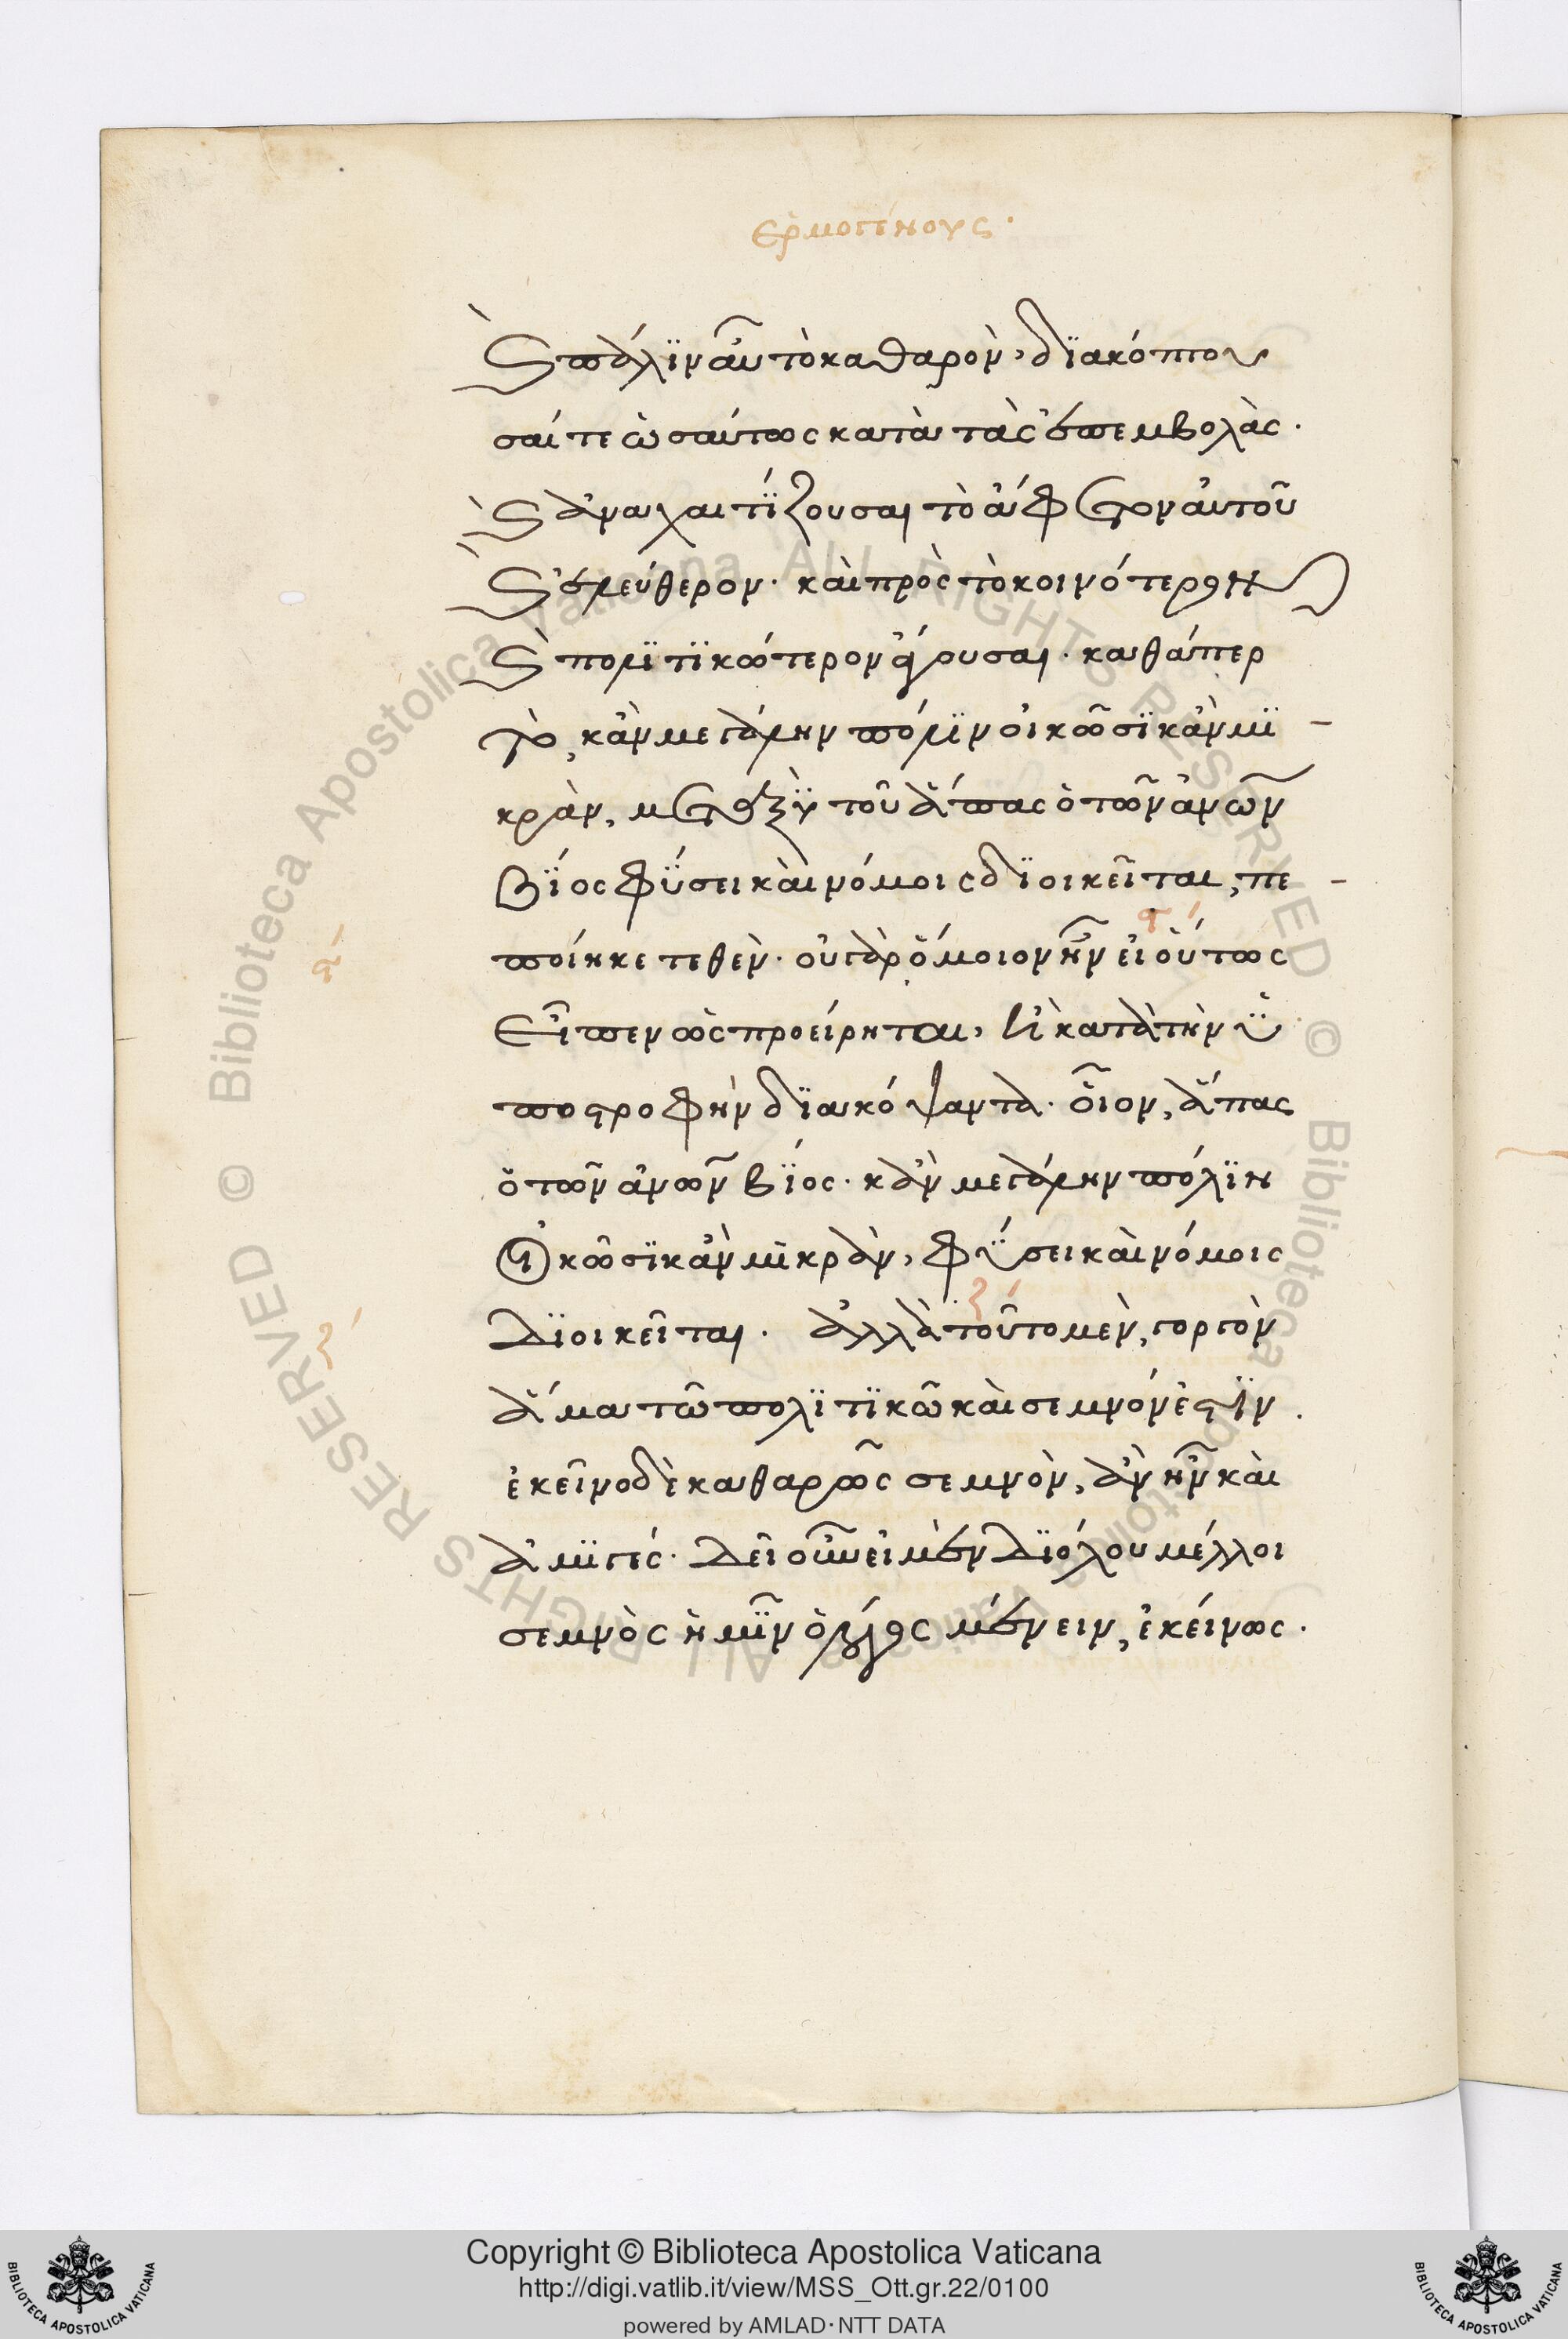 Ερμογένους.
Καὶ πάλιν αὖ τὸ καθαρὸν, διακόπτου
σαί τε ὡσαύτως κατὰ τὰς ἐπεμβολὰς.
καὶ ἀναχαιτίζουσαι τὸ ἄφετον αὐτοῦ
καὶ ἐλεύθερον. καὶ πρὸς τὸ κοινότερον
καὶ πολιτικώτερον ἄγουσαι. καθάπερ
τὸ, κἂν μεγάλην πόλιν οἰκῶσι κἂν μι
κρὰν, μεταξὺ τοῦ ἅπας ὁ τῶν ἀνων
βίος φύσει καὶ νόμοις διοικεῖται, πε
ποίηκε τεθὲν. οὐ γὰρ ὅμοιον ἦν εἰ οὕτως
εἶπεν ὡς προείρηται, ἢ κατὰ τὴν ὑ
ποστροφὴν διακόψαντα. οἷον, ἅπας
ὁ τῶν ἀνων βίος. κἂν μεγάλην πόλιν
οἰκῶσι κἂν μικρὰν, φύσει καὶ νόμοις
διοικεῖται. ἀλλὰ τοῦτο μὲν, γοργὸν
ἅμα τῶ πολιτικῶ καὶ σεμνόν ἐστιν.
ἐκεῖνο δὲ καθαρῶς σεμνὸν, ἂν ἦν καὶ
ἀμιγές. Δεῖ οὖν εἰ μὲν διόλου μέλλοι
σεμνὸς ἡμῖν ὁ λόγος μένειν, ἐκείνως.
Copyright © Biblioteca Apostolica Vaticana
http://digi.vatlib.it/view/MSS_Ott.gr.22/0100
powered by AMLAD·NTT DATA